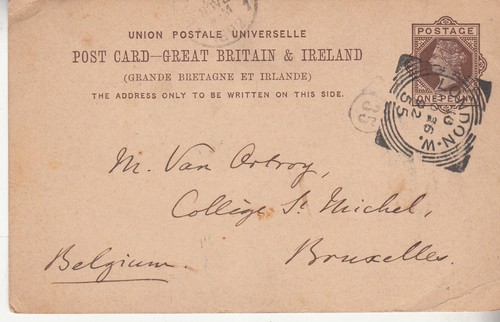 UNION POSTALE UNIVERSELLE
POST CARD—GREAT BRITAIN & IRELAND
(GRANDE BRETAGNE ET IRLANDE)
THE ADDRESS ONLY TO BE WRITTEN ON THIS SIDE.
POSTAGE
ONE PENNY
LONDON.W.
55
35
M. Van Ortroy,
Collège St Michel,
Bruxelles.
Belgium.